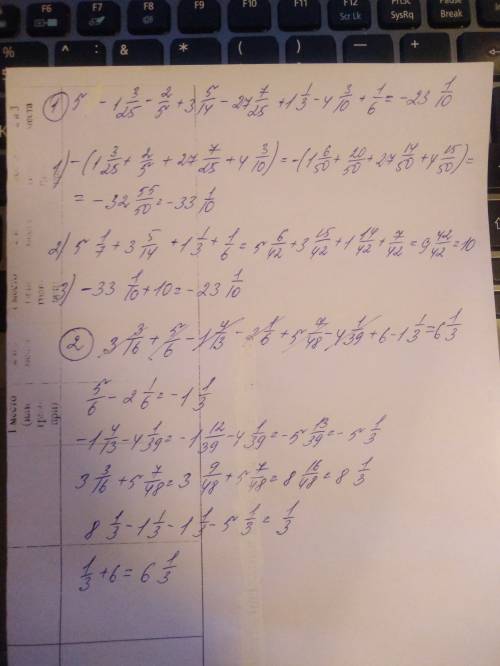 F6 F7 F8 F9 F10 F11 F12 Scr Lk PrtSc SysRq Pause Break
% ^ & * ( )
1) 5 - 1 3/25 - 2/5 + 3 5/14 - 27 7/25 + 1 1/3 - 4 3/10 + 1/6 = -23 1/10
1) -(1 3/25 + 2/5 + 27 7/25 + 4 3/10) = -(1 6/50 + 20/50 + 27 14/50 + 4 15/50) =
= -32 55/50 = -33 1/10
2) 5 1/7 + 3 5/14 + 1 1/3 + 1/6 = 5 6/42 + 3 15/42 + 1 14/42 + 7/42 = 9 42/42 = 10
3) -33 1/10 + 10 = -23 1/10
2) 3 3/16 + 5/6 - 1 4/13 - 2 1/6 + 5 7/48 - 4 1/39 + 6 - 1 1/3 = 6 1/3
5/6 - 2 1/6 = -1 1/3
-1 4/13 - 4 1/39 = -1 12/39 - 4 1/39 = -5 13/39 = -5 1/3
3 3/16 + 5 7/48 = 3 9/48 + 5 7/48 = 8 16/48 = 8 1/3
8 1/3 - 1 1/3 - 1 1/3 - 5 1/3 = 1/3
1/3 + 6 = 6 1/3